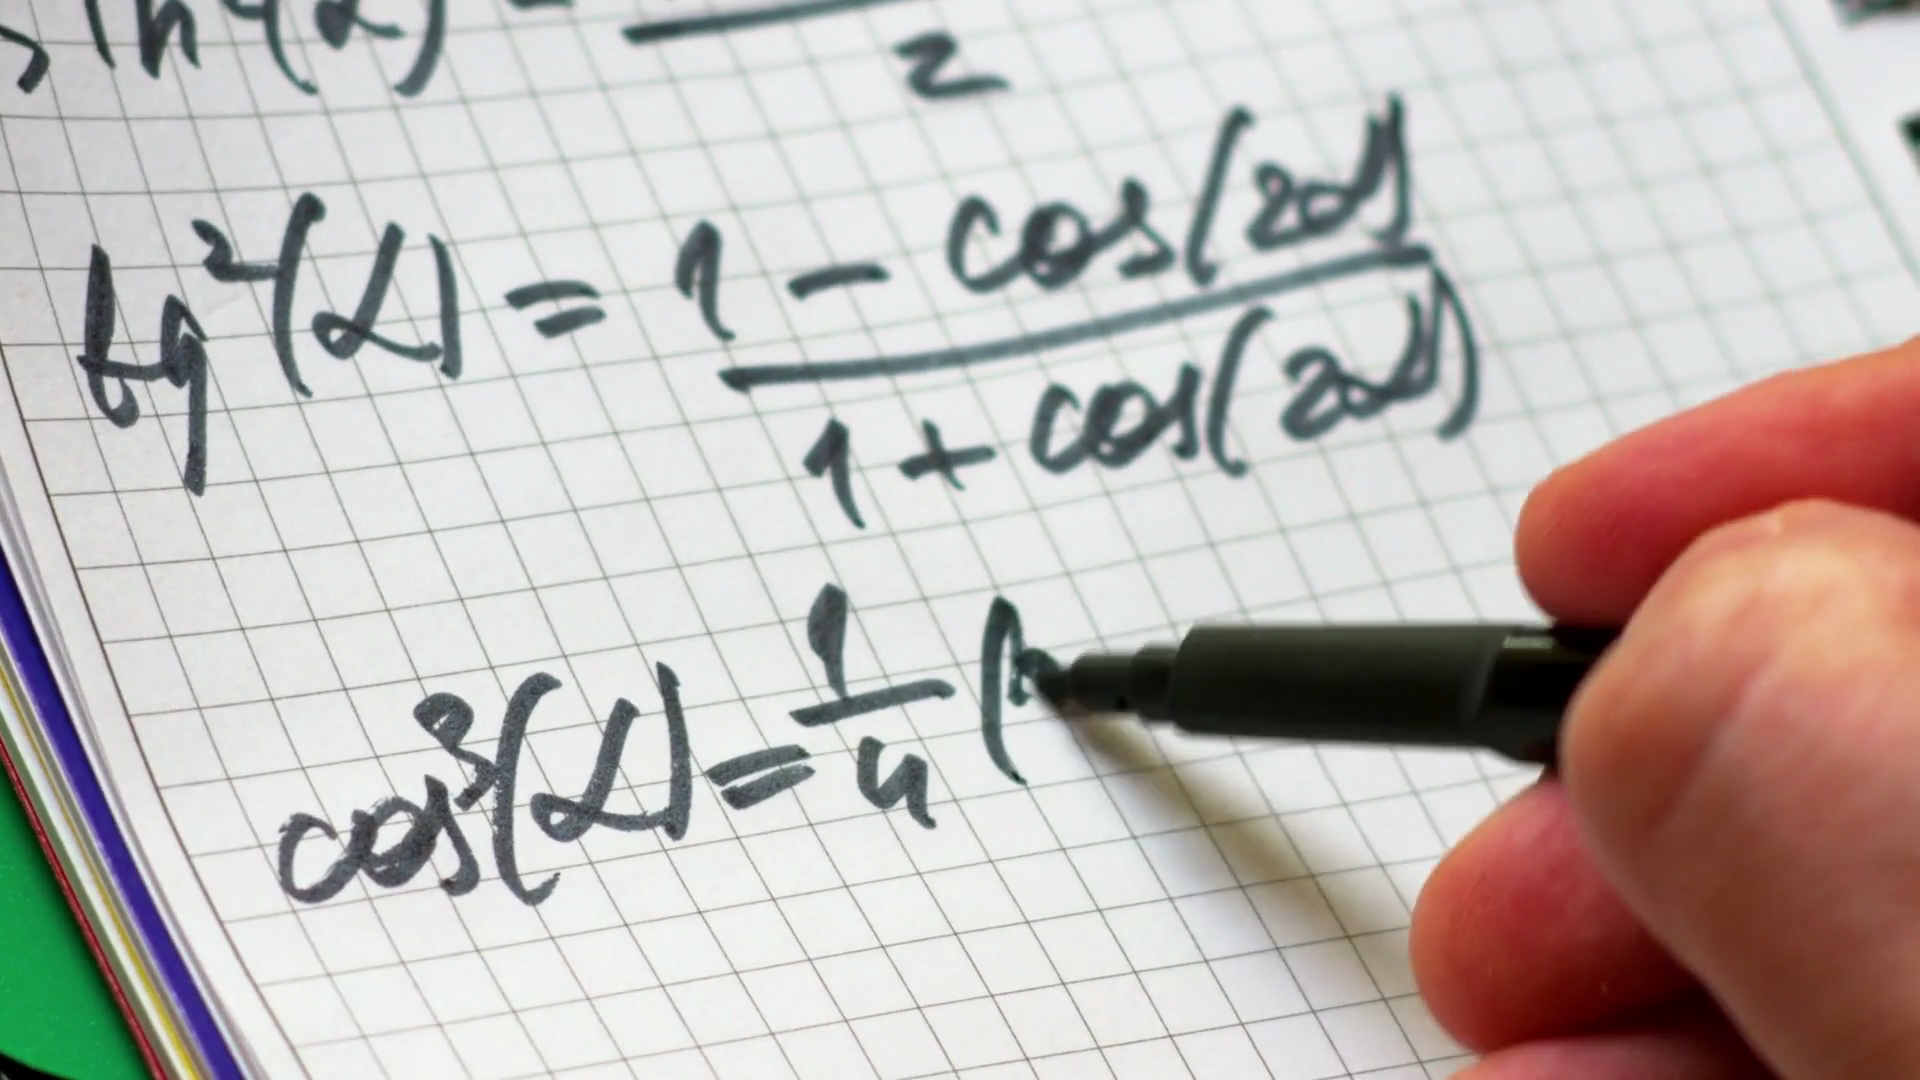 sin²(α) = 2
tg²(α) = 1 - cos(2α) / 1 + cos(2α)
cos³(α) = 1/4 (